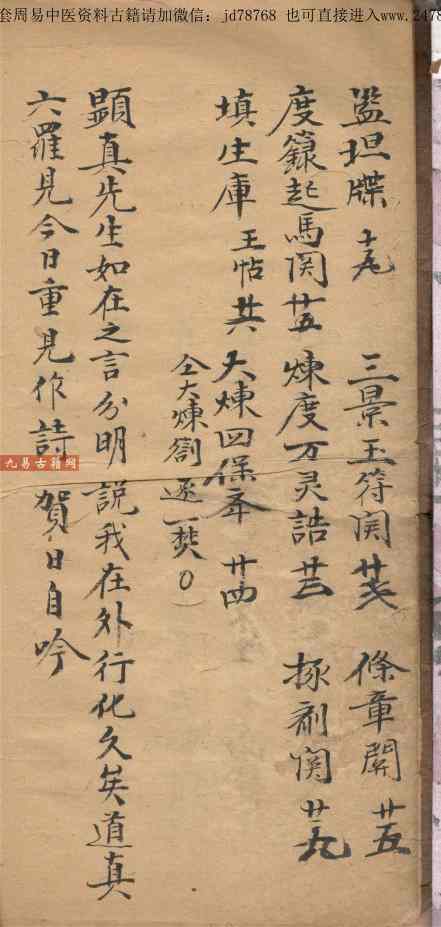 套周易中医资料古籍请加微信：jd78768 也可直接进入www.2478
監坦牒 十九 三景玉符関 廿七 條章関 廿五
度籙起馬関 廿五 煉度万灵誥 廿三 捄劑関 廿九
填生庫 王帖 廿六 大煉四保年 廿四
仝大煉劄逐一焚
顕真先生如在之言分明説我在外行化久矣道真
六羅見今日重見作詩賀日自吟
九易古籍网